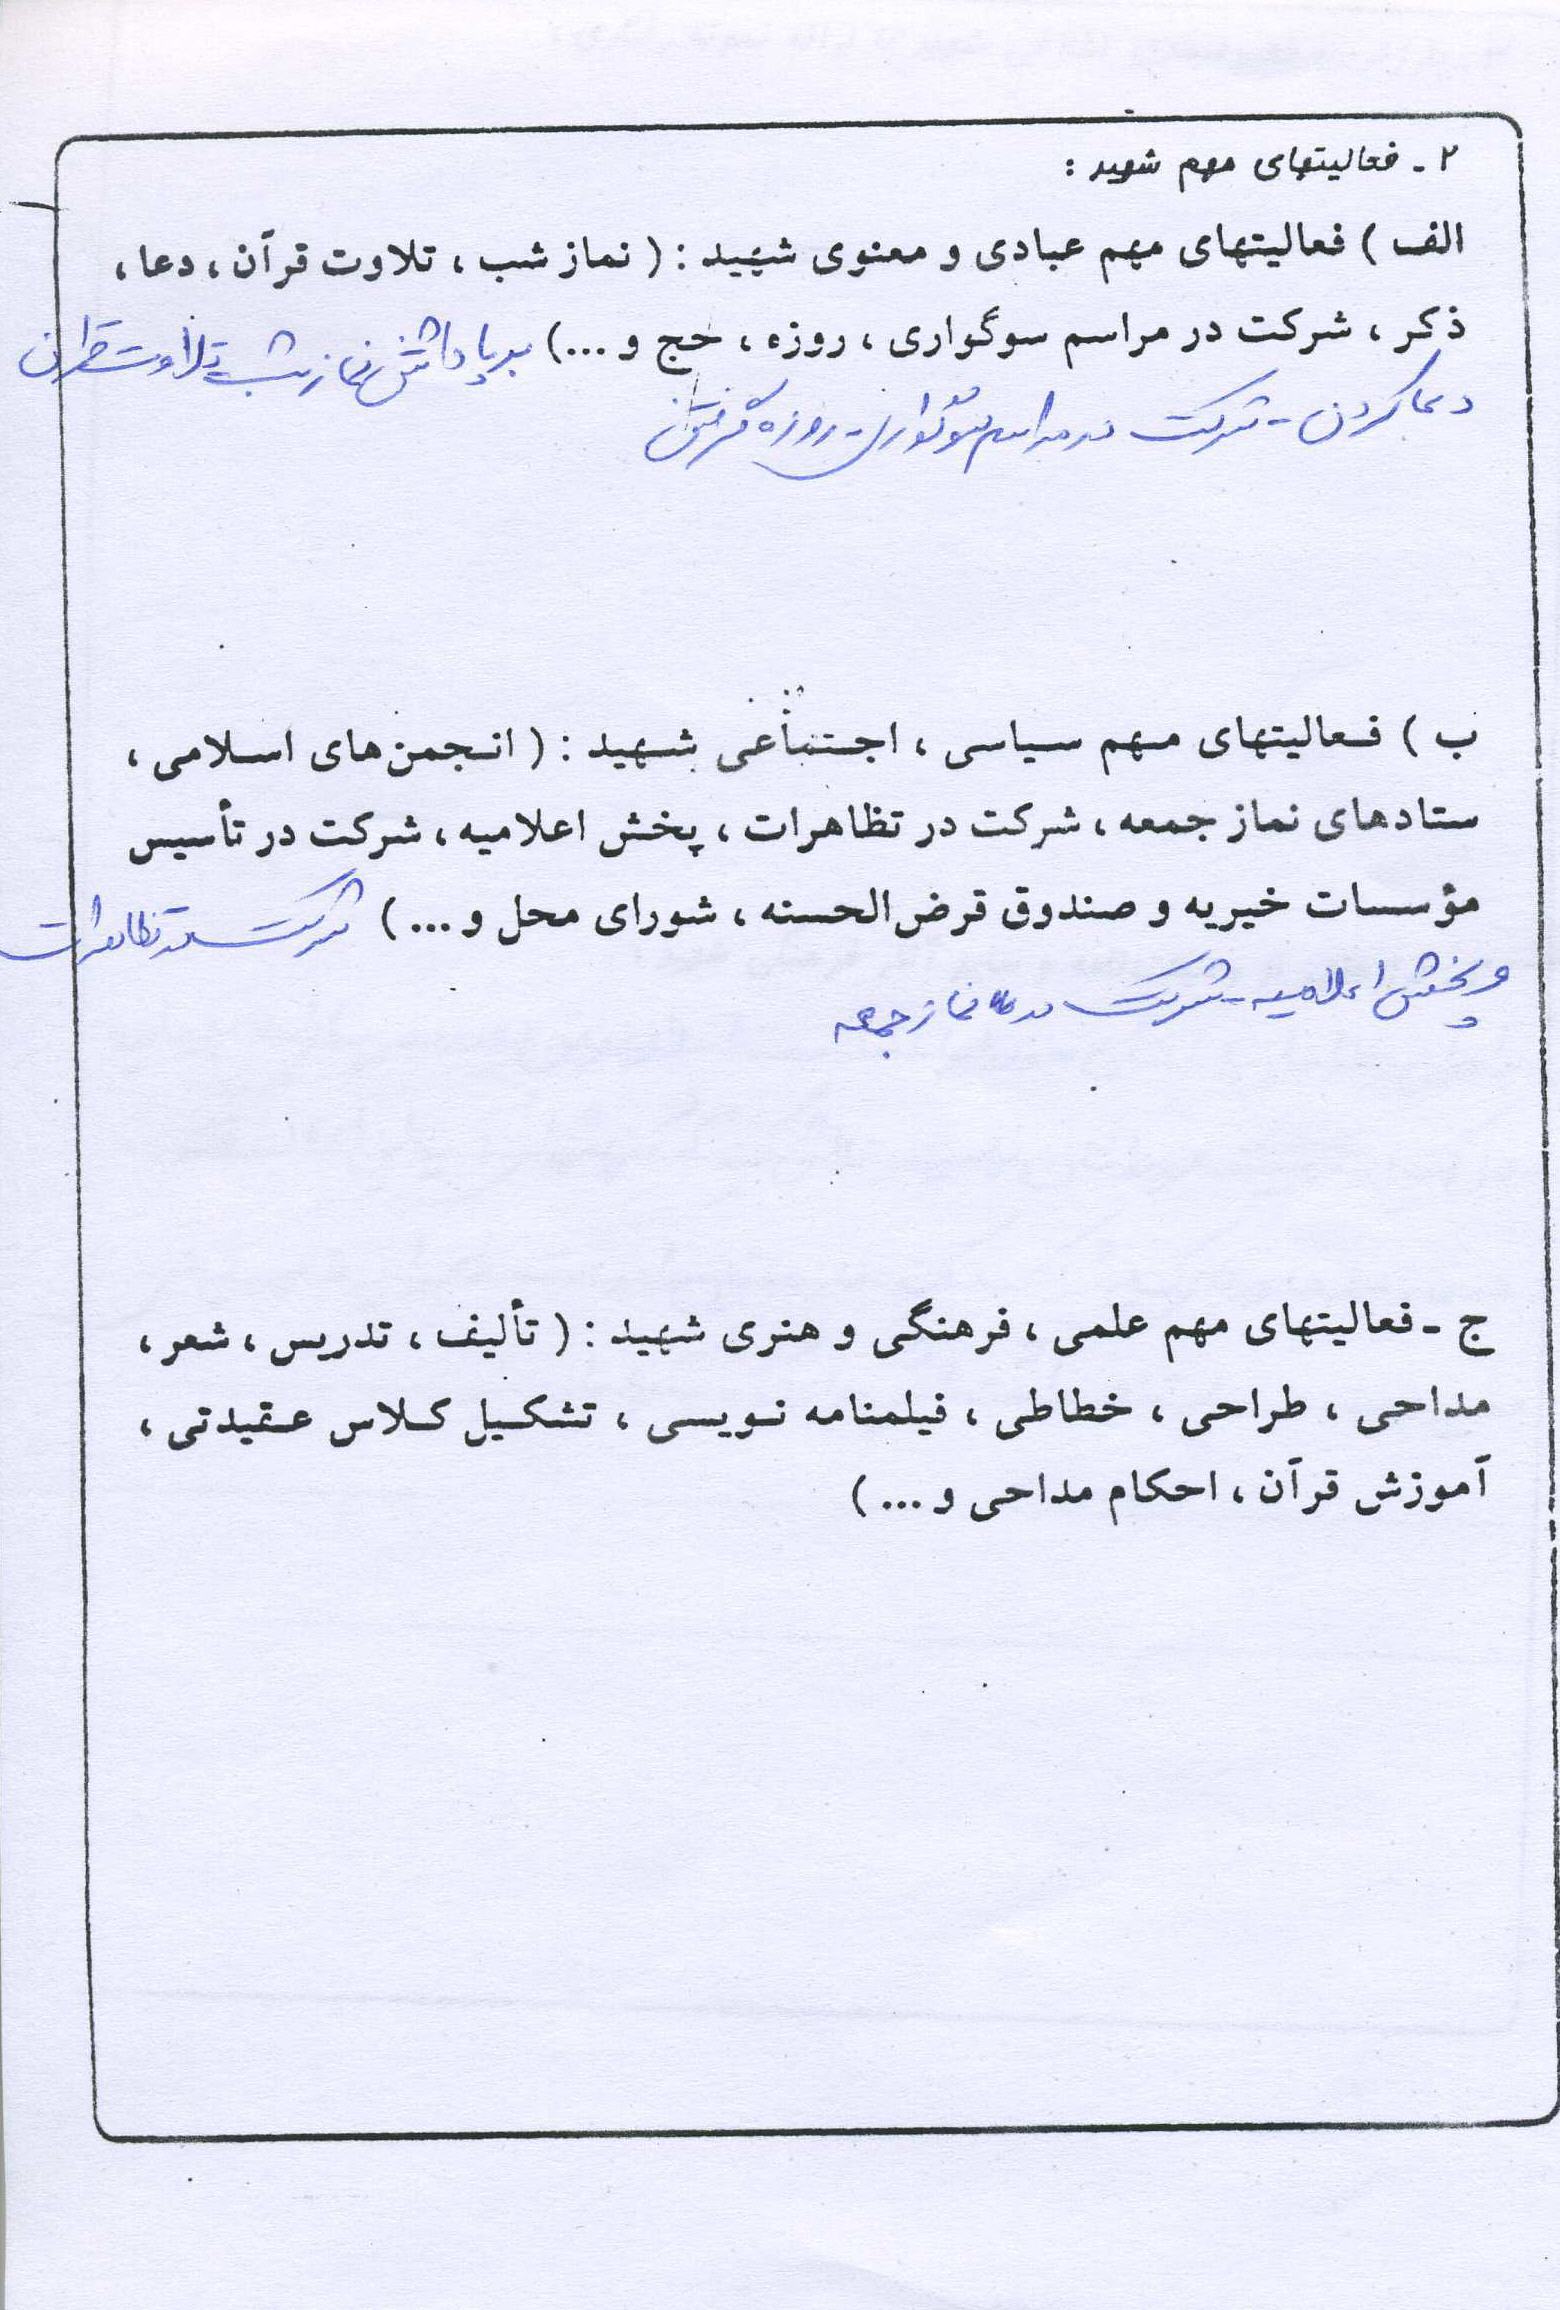 ۲ ـ فعالیتهای مهم شهید :
الف ) فعالیتهای مهم عبادی و معنوی شهید : ( نماز شب ، تلاوت قرآن ، دعا ،
ذکر ، شرکت در مراسم سوگواری ، روزه ، حج و ... ) برپا داشتن نماز شب - تلاوت قرآن
دعا کردن - شرکت در مراسم سوگواری - روزه گرفتن
ب ) فعالیتهای مهم سیاسی ، اجتماعی شهید : ( انجمن‌های اسلامی ،
ستادهای نماز جمعه ، شرکت در تظاهرات ، پخش اعلامیه ، شرکت در تأسیس
مؤسسات خیریه و صندوق قرض‌الحسنه ، شورای محل و ... ) شرکت در تظاهرات
و پخش اعلامیه - شرکت در نماز جمعه
ج ـ فعالیتهای مهم علمی ، فرهنگی و هنری شهید : ( تألیف ، تدریس ، شعر ،
مداحی ، طراحی ، خطاطی ، فیلمنامه نویسی ، تشکیل کلاس عقیدتی ،
آموزش قرآن ، احکام مداحی و ... )